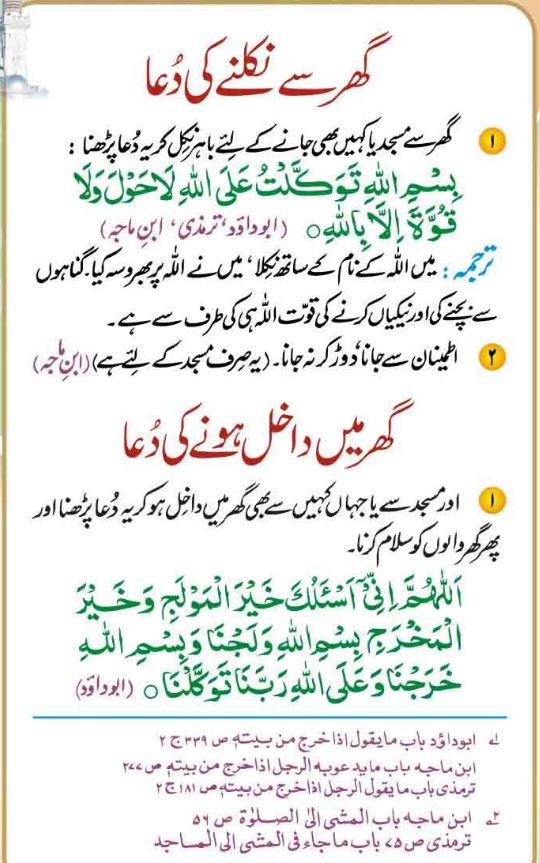 گھر سے نکلنے کی دُعا
۱ گھر سے مسجد یا کہیں بھی جانے کے لئے باہر نکل کر یہ دُعا پڑھنا :
بِسْمِ اللهِ تَوَكَّلْتُ عَلَى اللهِ لَاحَوْلَ وَلَا
قُوَّةَ اِلَّا بِاللهِ ○ (ابوداؤد، ترمذی، ابنِ ماجہ)
ترجمہ : میں اللہ کے نام کے ساتھ نکلا، میں نے اللہ پر بھروسہ کیا۔ گناہوں
سے بچنے کی اور نیکیاں کرنے کی قوّت اللہ ہی کی طرف سے ہے۔
۲ اطمینان سے جانا، دوڑ کر نہ جانا۔ (یہ صِرف مسجد کے لئے ہے) (ابنِ ماجہ)
گھر میں داخل ہونے کی دُعا
۱ اور مسجد سے یا جہاں کہیں سے بھی گھر میں داخِل ہو کر یہ دُعا پڑھنا اور
پھر گھر والوں کو سلام کرنا۔
اَللّٰهُمَّ اِنِّىْٓ اَسْئَلُكَ خَيْرَ الْمَوْلَجِ وَخَيْرَ
الْمَخْرَجِ بِسْمِ اللهِ وَلَجْنَا وَبِسْمِ اللهِ
خَرَجْنَا وَعَلَى اللهِ رَبِّنَا تَوَكَّلْنَا ○ (ابوداؤد)
۱ ابوداؤد باب مایقول اذاخرج من بیتہٖ ص ۳۳۹ ج ۲
ابن ماجہ باب مایدعوبہ الرجل اذاخرج من بیتہٖ ص ۲۷۷
ترمذی باب مایقول الرجل اذاخرج من بیتہٖ ص ۱۸۱ ج ۲
۲ ابن ماجہ باب المشی الی الصلوٰة ص ۵۶
ترمذی ص ۷۵ باب ماجاء فی المشی الی المساجد